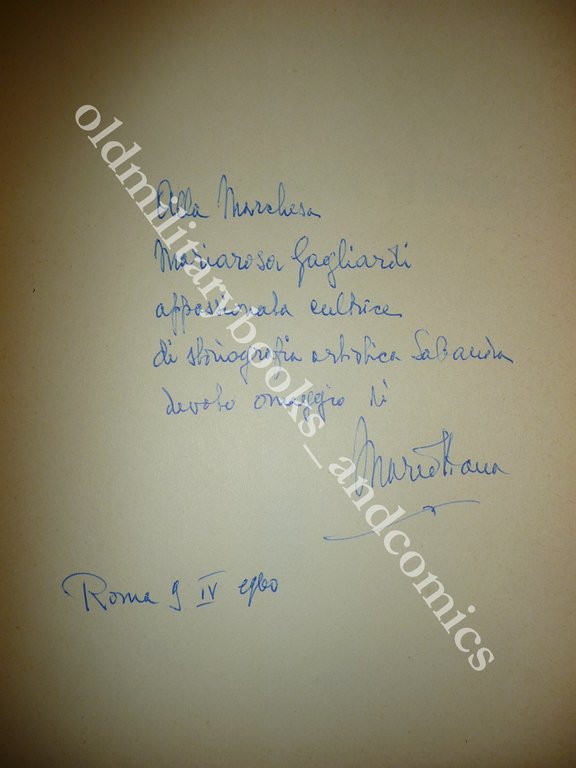 Alla Marchesa
Mariarosa Gagliardi
appassionata cultrice
di storiografia artistica Sabauda
devoto omaggio di
Roma 9 IV
oldmilitarybooks_andcomics